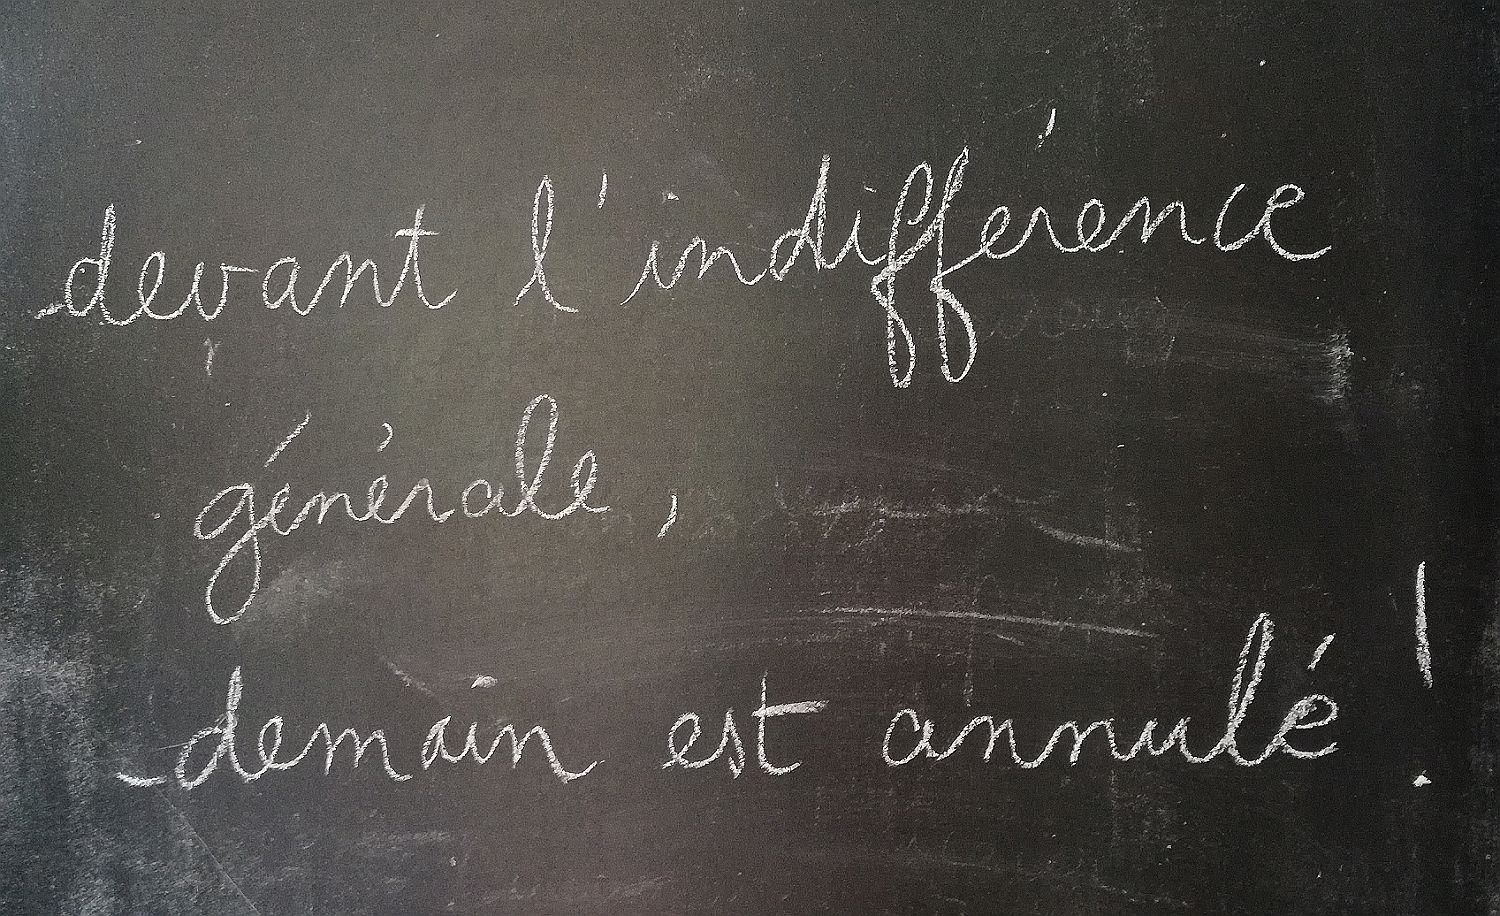 devant l'indifférence
générale,
demain est annulé !